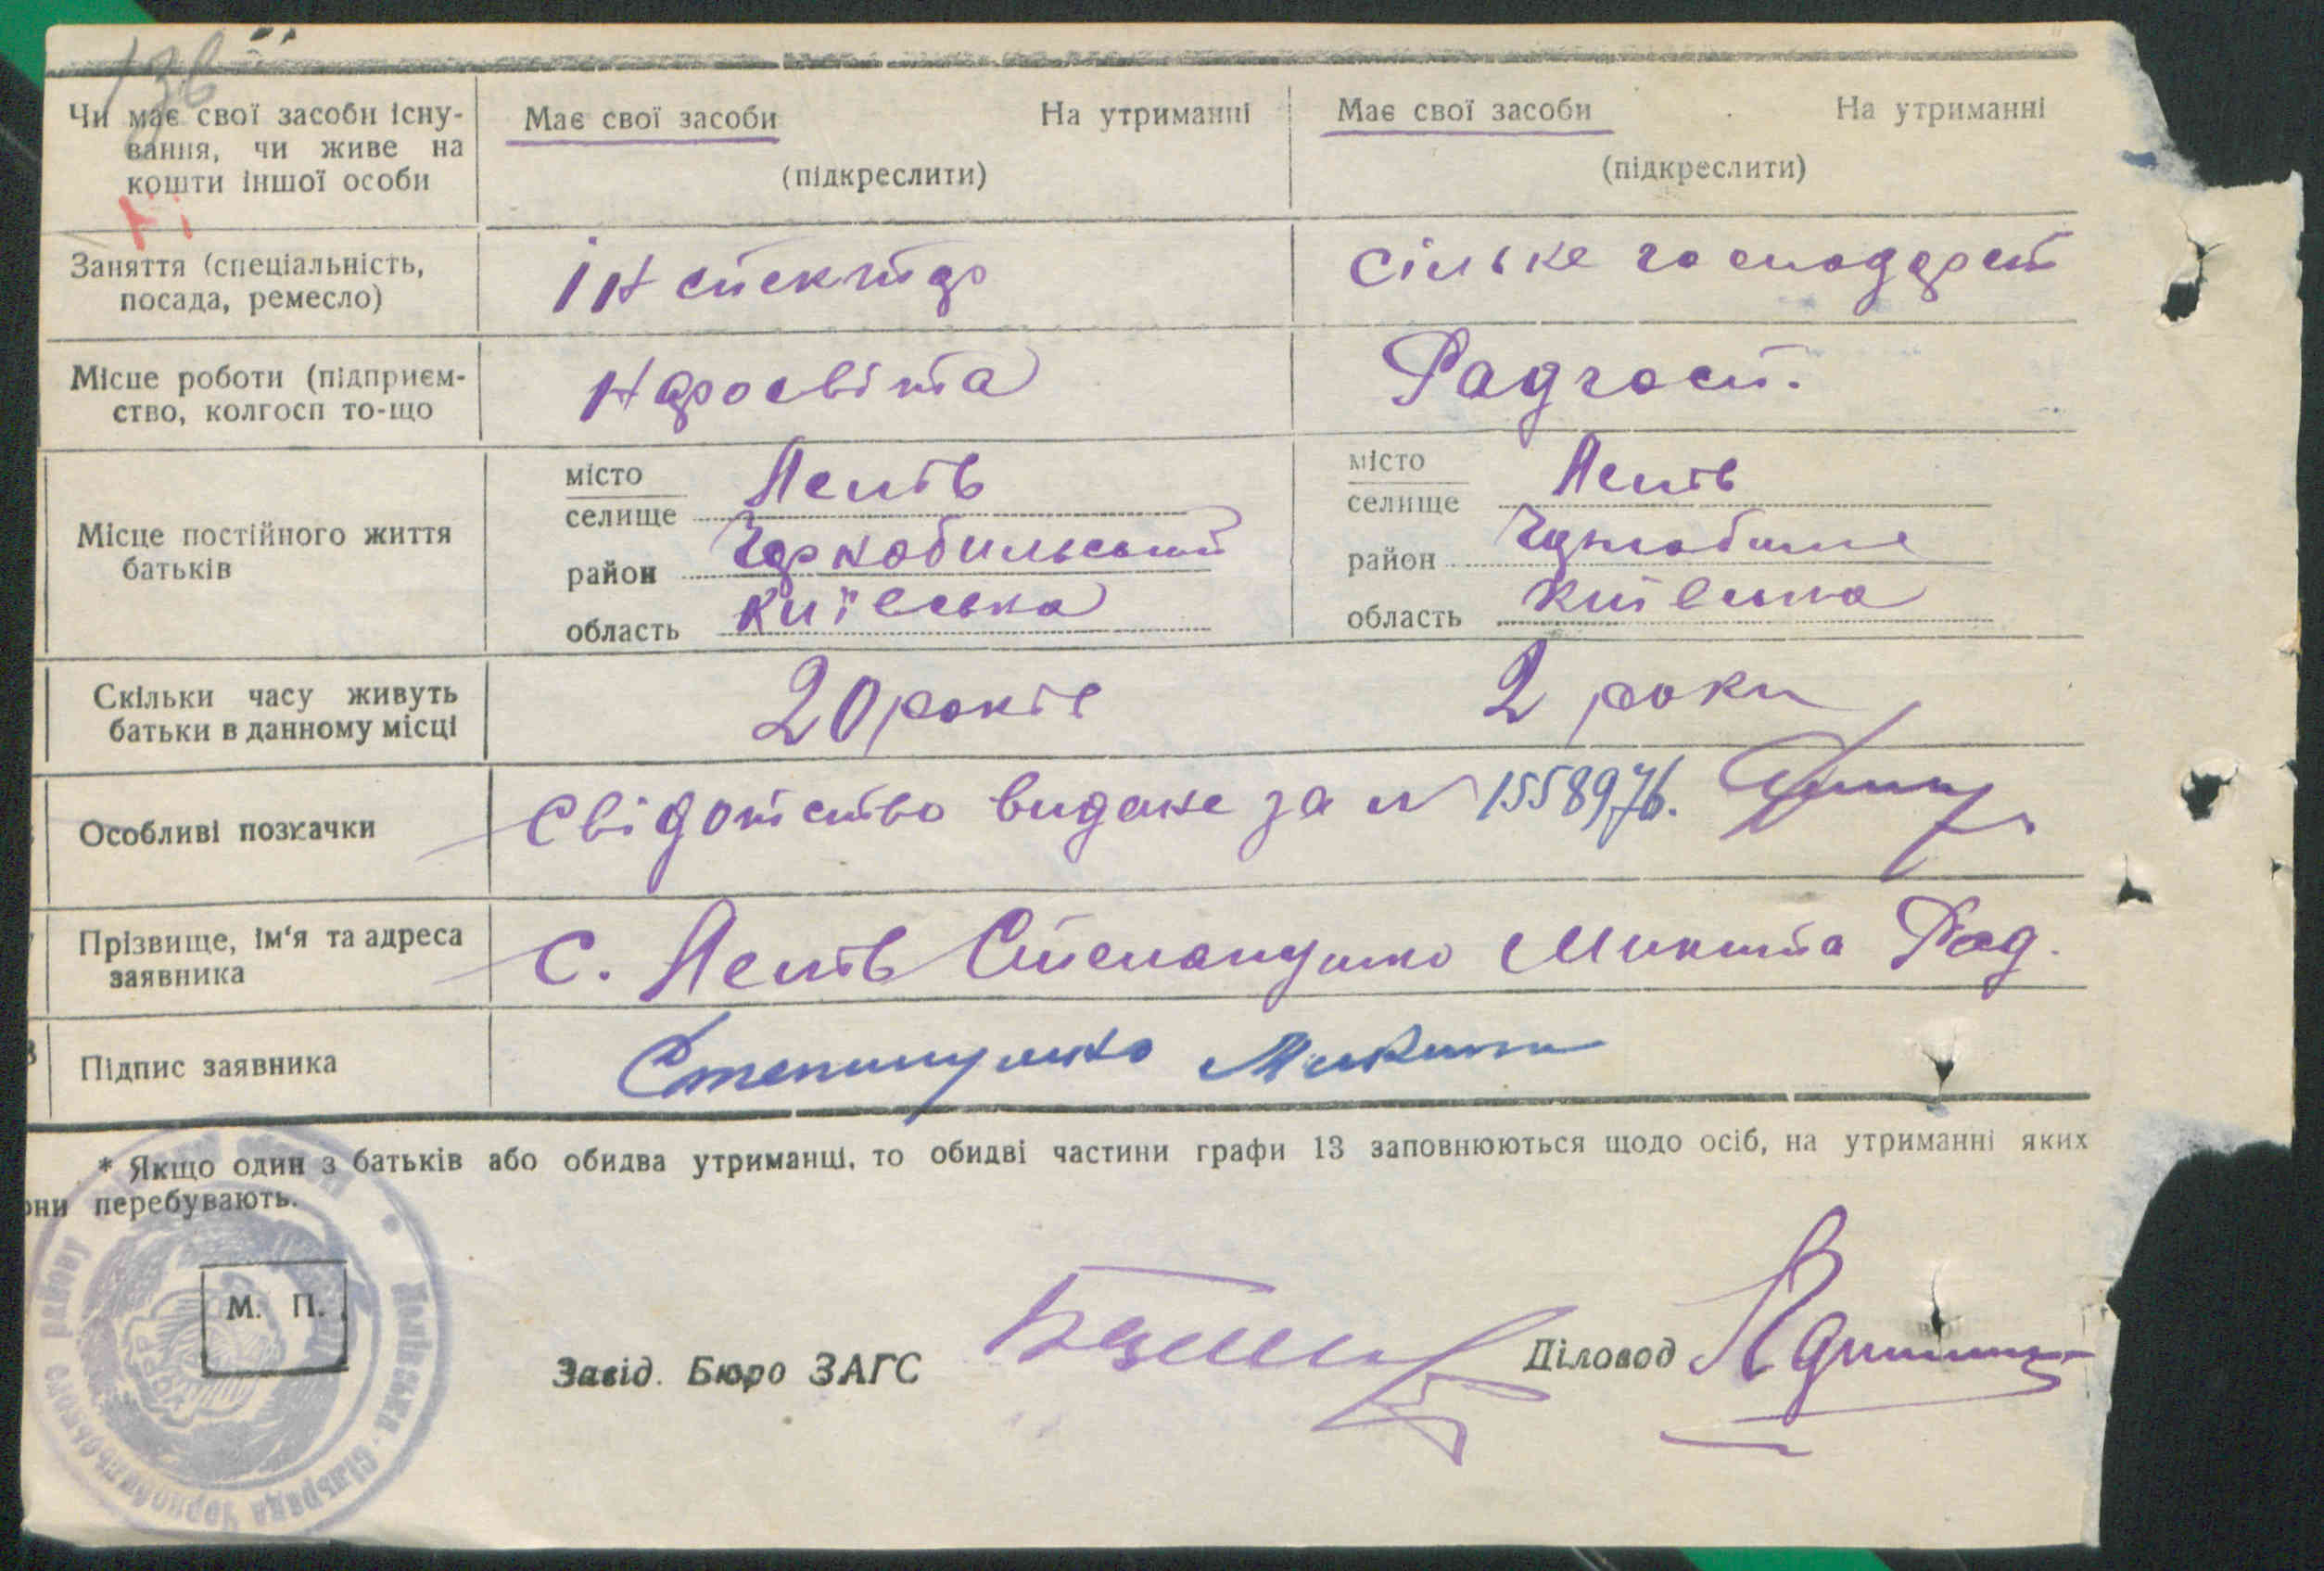 136
Чи має свої засоби існу- Має свої засоби На утриманні Має свої засоби На утриманні
вання, чи живе на
кошти іншої особи (підкреслити) (підкреслити)
Заняття (спеціальність, Інспектор Сільське господарст
посада, ремесло)
Місце роботи (підприєм- Наросвіта Радгосп.
ство, колгосп то-що
Місце постійного життя
батьків
місто Лелів місто Лелів
селище селище
район Чорнобильський район
область Київська область Київська
Скільки часу живуть 20 років 2 роки
батьки в данному місці
Особливі позначки Свідотство видане за № 1558976.
Прізвище, ім'я та адреса С. Лелів Микита Рад.
заявника
Підпис заявника Микита
* Якщо один з батьків або обидва утриманці, то обидві частини графи 13 заповнюються щодо осіб, на утриманні яких
они перебувають.
М. П.
Завід. Бюро ЗАГС Діловод
сільрада Чорнобильського району